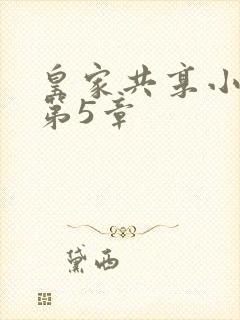 皇家共享小
第5章
黛西